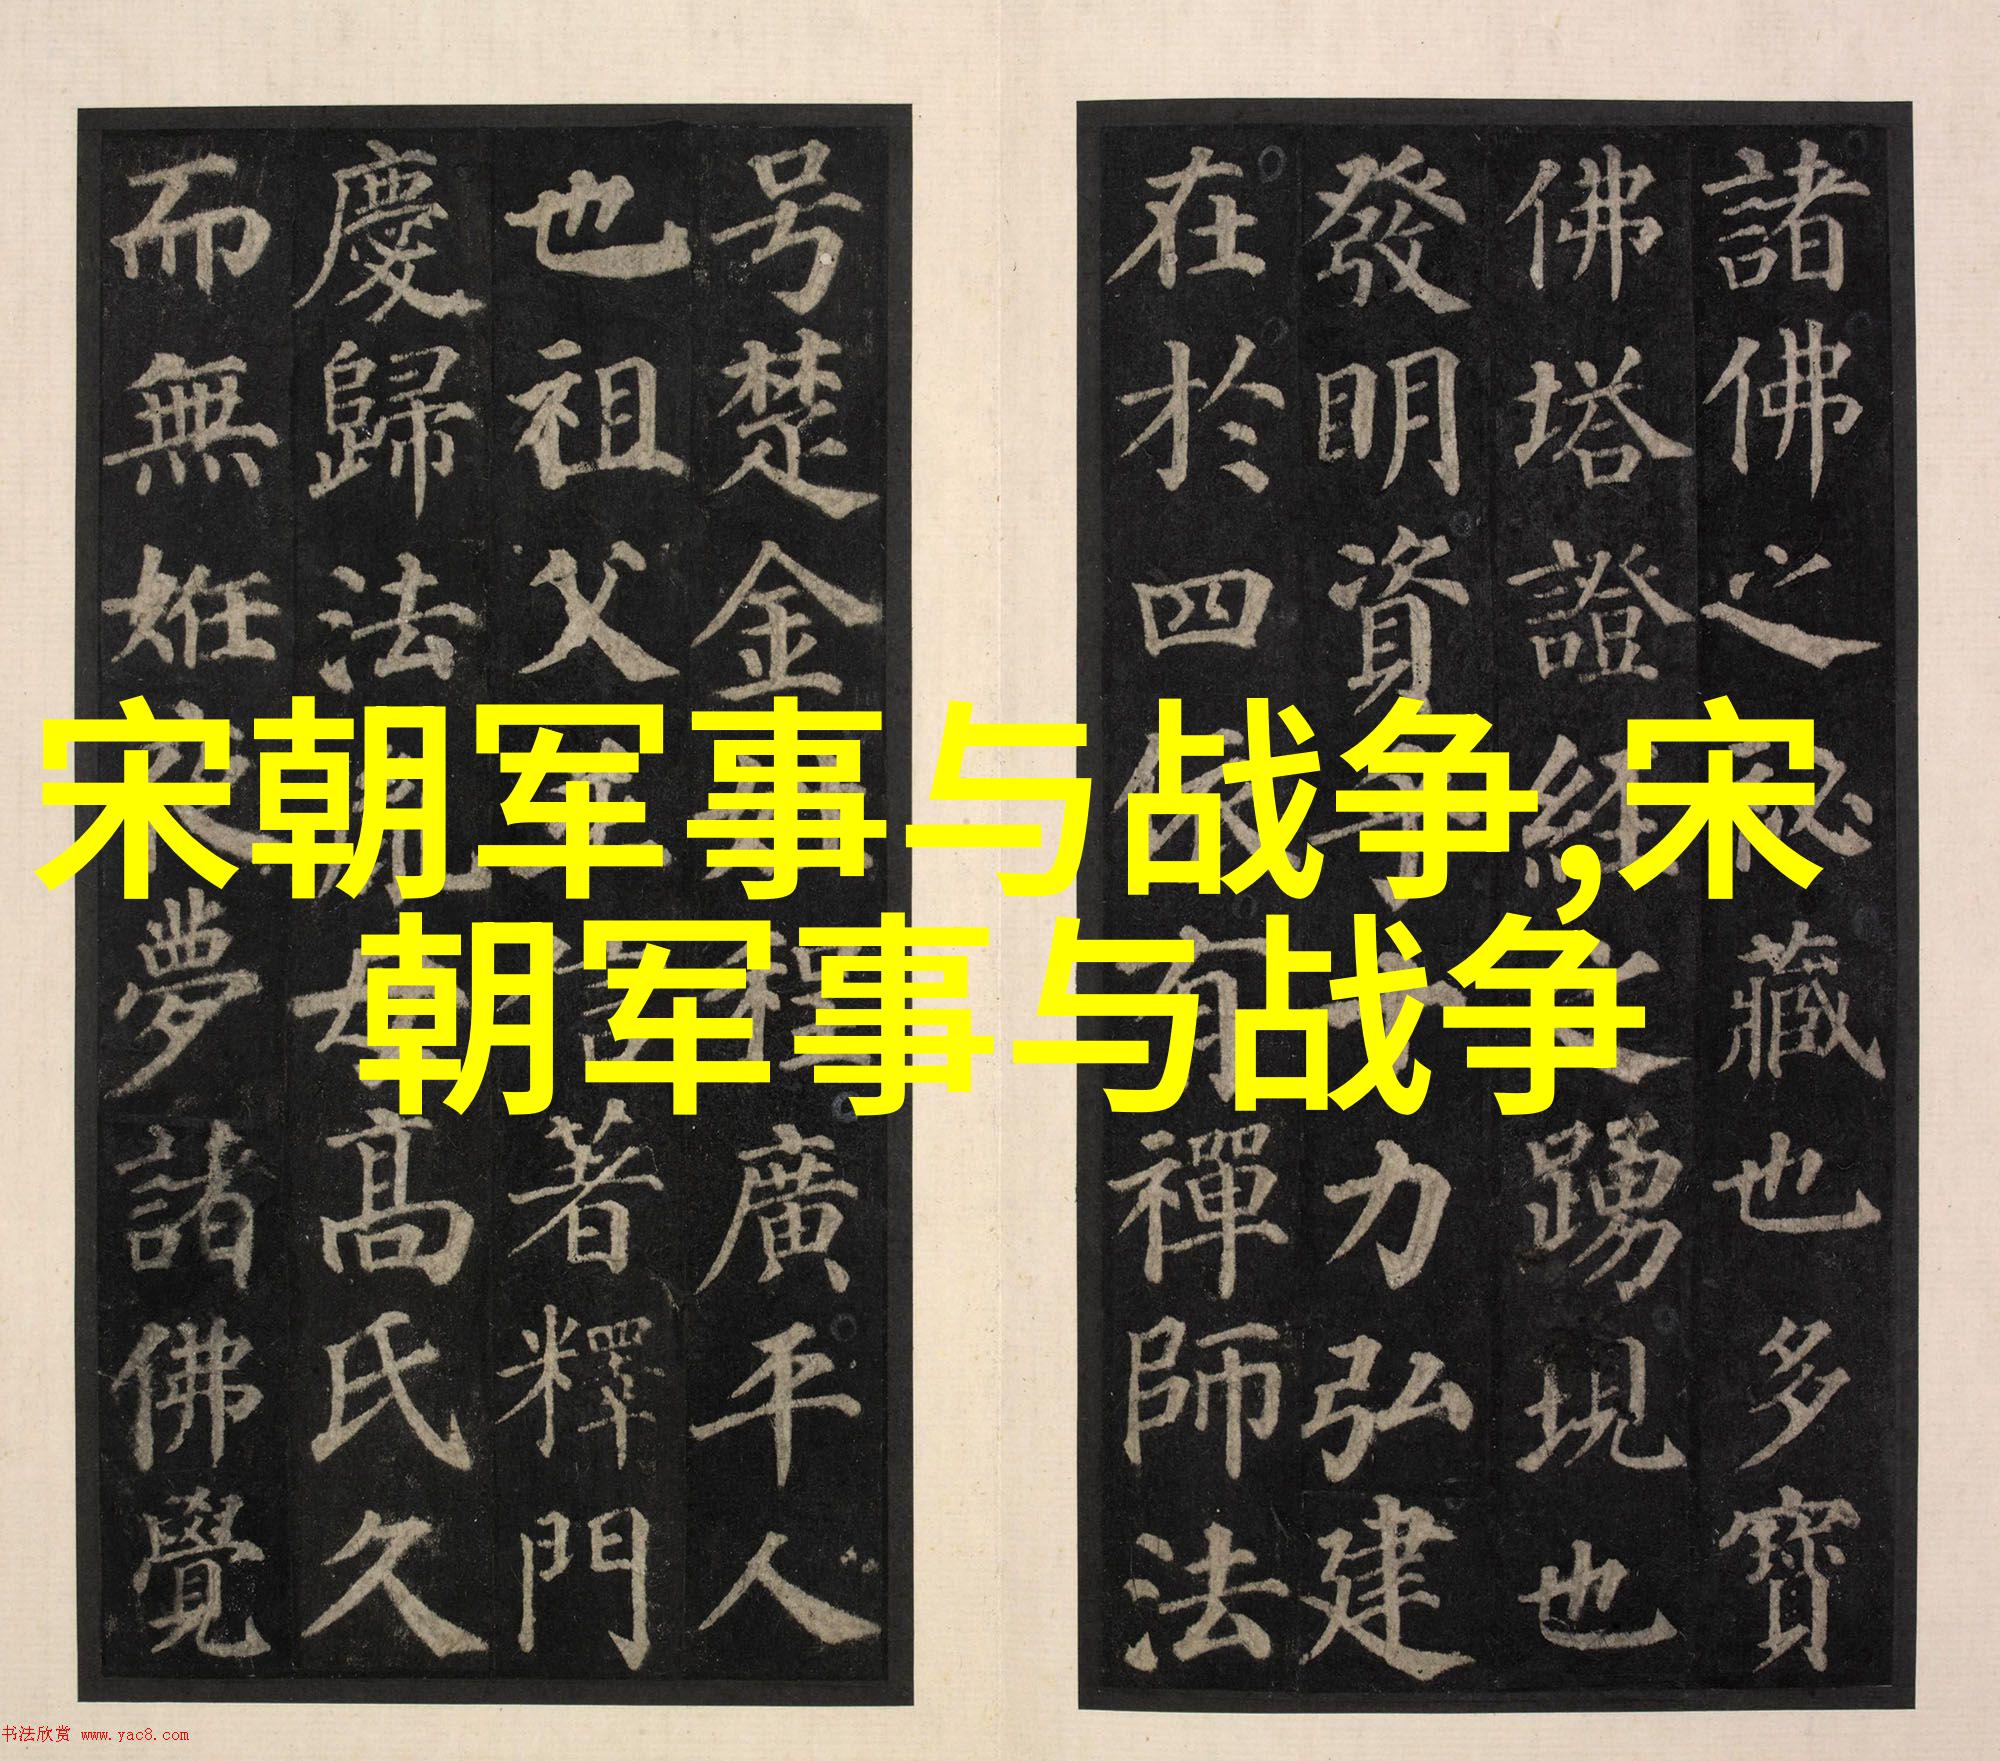 宋朝军事与战争,宋
朝军事与战争
諸佛之秘藏也多寶
佛塔證經之踴現也
發明資力弘建
在於四依有禪師法
号楚金程廣平人
也祖父著釋門
慶歸法母高氏久
而無姙夜夢諸佛覺
书法欣赏 www.yac8.com